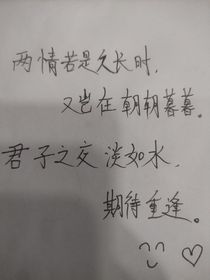 两情若是久长时，
又岂在朝朝暮暮。
君子之交淡如水，
期待重逢。